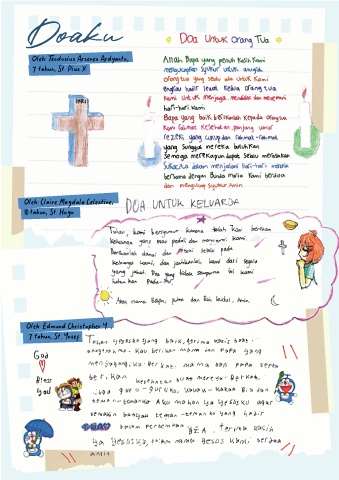 Doaku
Oleh Teodosius Arsenes Ardyanto,
7 tahun, St. Pius X
DOA UNTUK Orang TUA
Allah Bapa yang penuh kasih Kami
mengucapkan syukur untuk anugrah
orang tua yang sudah ada untuk kami
Engkau hadir lewat kedua orang tua
Kami untuk menjaga, mendidik dan menemani
hari-hari kami
Bapa yang baik berikanlah kepada orang tua
kami rahmat kesehatan, panjang umur
rezeki yang cukup dan rahmat-rahmat
yang sungguh mereka butuhkan
Semoga mereka pun dapat selalu merasakan
sukacita dalam menjalani hari-hari mereka
bersama dengan Bunda Maria Kami berdoa
dan mengucap Syukur Amin
INRI
Oleh Claire Magdala Celestine,
8 tahun, St. Hugo
DOA UNTUK KELUARGA
Tuhan, kami bersyukur karena telah Kau berikan
keluarga yang mau peduli dan menyayangi kami.
Berikanlah damai dan rezeki selalu pada
keluarga kami, dan jauhkanlah kami dari segala
yang jahat. Doa yang tidak sempurna ini kami
hatur
Atas nama Bapa, putra dan Roh kudus, Amin.
Oleh Edmund Christopher
7 tahun, St. Yusuf
God
Bless
You
Tuhan Yesusku yang baik, terima kasih buat
anugerahmu. Kau berikan mama dan papa yang
menjagaku. Berkati mama dan papa serta
berikan kesehatan buat mereka. Berkati
juga guru-guruku, kakak-kakak Bia dan
teman-temanku. Aku mohon ya Yesusku agar
semakin banyak teman-teman ku yang hadir
dalam pertemuan BIA. Terima kasih
ya Yesusku, dalam nama Yesus kami berdoa
amin